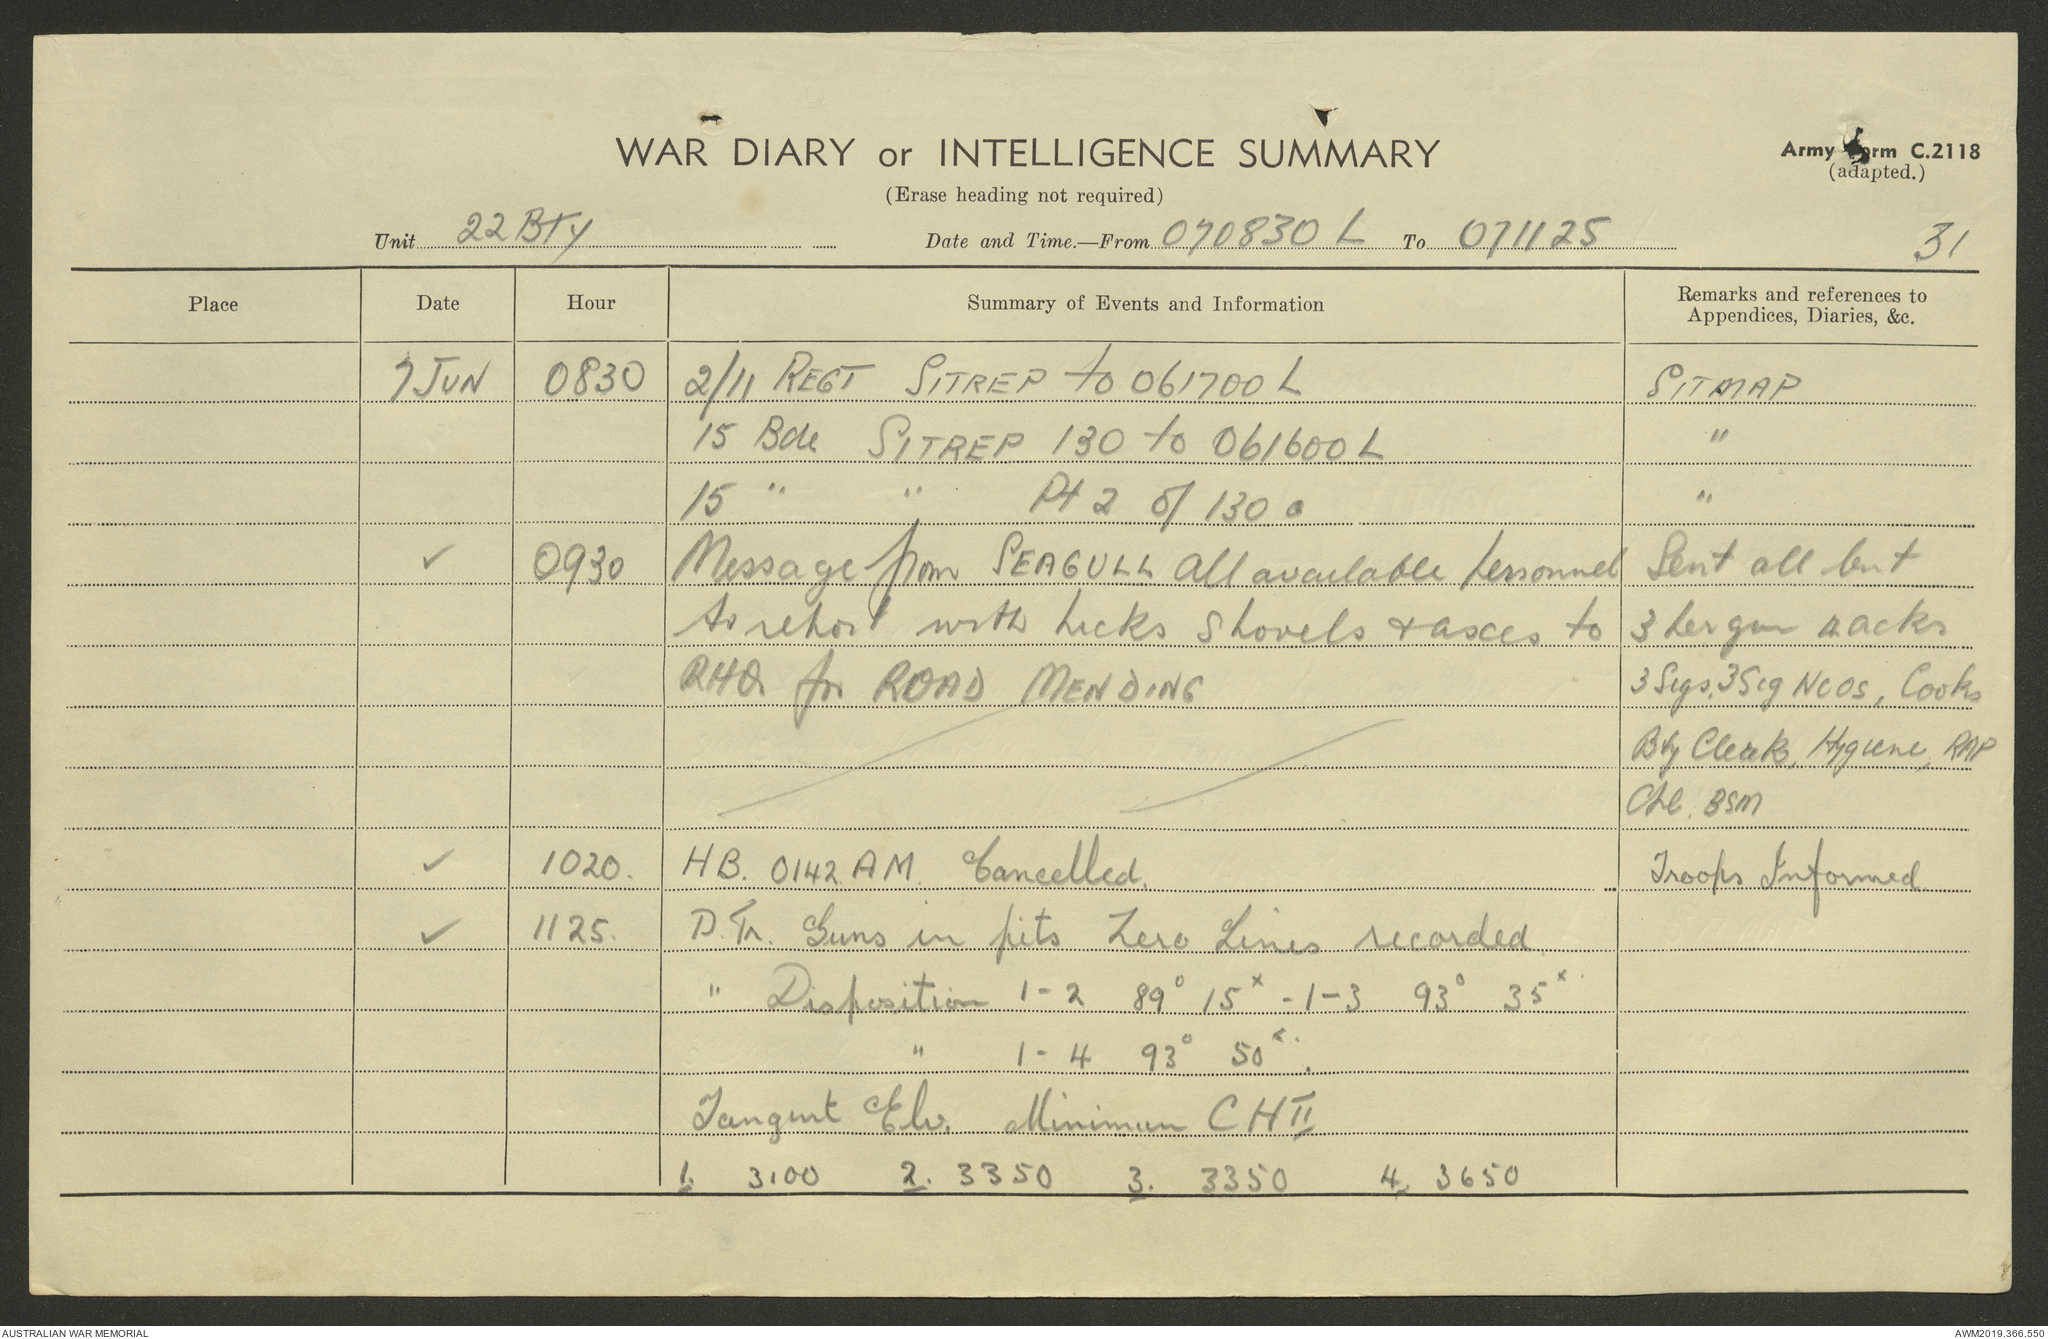 WAR DIARY or INTELLIGENCE SUMMARY
Army Form C.2118
(adapted.)
(Erase heading not required)
Unit 22 BTY Date and Time.—From 070830 L To 071125
31
Place Date Hour Summary of Events and Information Remarks and references to Appendices, Diaries, &c.
7 JUN 0830 2/11 REGT SITREP to 061700 L SITMAP
15 Bde SITREP 130 to 061600 L "
15 " " Pt 2 of 130 "
✓ 0930 Message from SEAGULL all available personnel Sent all but
to report with picks shovels & axes to 3 per gun 4 acks
RHQ for ROAD MENDING 3 Sigs, 3 Sig NCOs, Cooks
Bty Clerk, Hygiene, RAP
Cpl. BSM
✓ 1020. HB. 0142 AM. Cancelled. Troops Informed
✓ 1125. D. Tp. Guns in pits Zero Lines recorded
" Disposition 1-2 89° 15ˣ - 1-3 93° 35ˣ
" 1-4 93° 50ˣ.
Tangent Elv. Minimum CH II
1. 3100 2. 3350 3. 3350 4. 3650
AUSTRALIAN WAR MEMORIAL
AWM2019.366.550